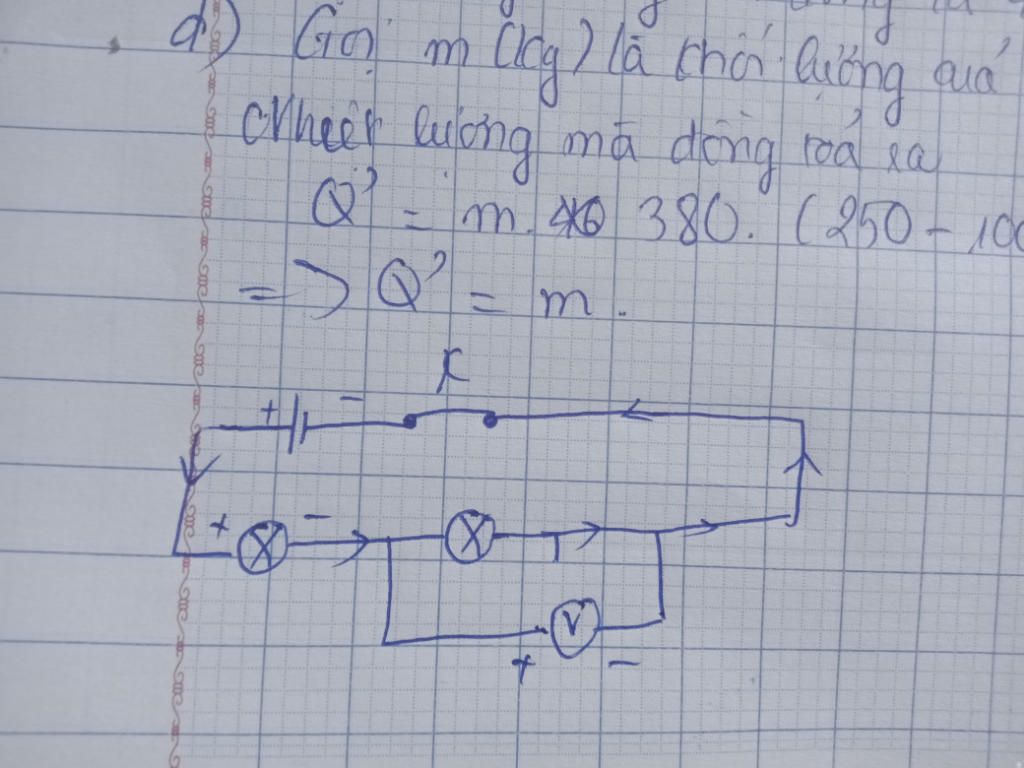 d) Gọi m (kg) là khối lượng quả
Nhiệt lượng mà đồng toả ra
Q' = m. 380. (250 - 100
=> Q' = m.
K
+ -
+ -
V
+ -